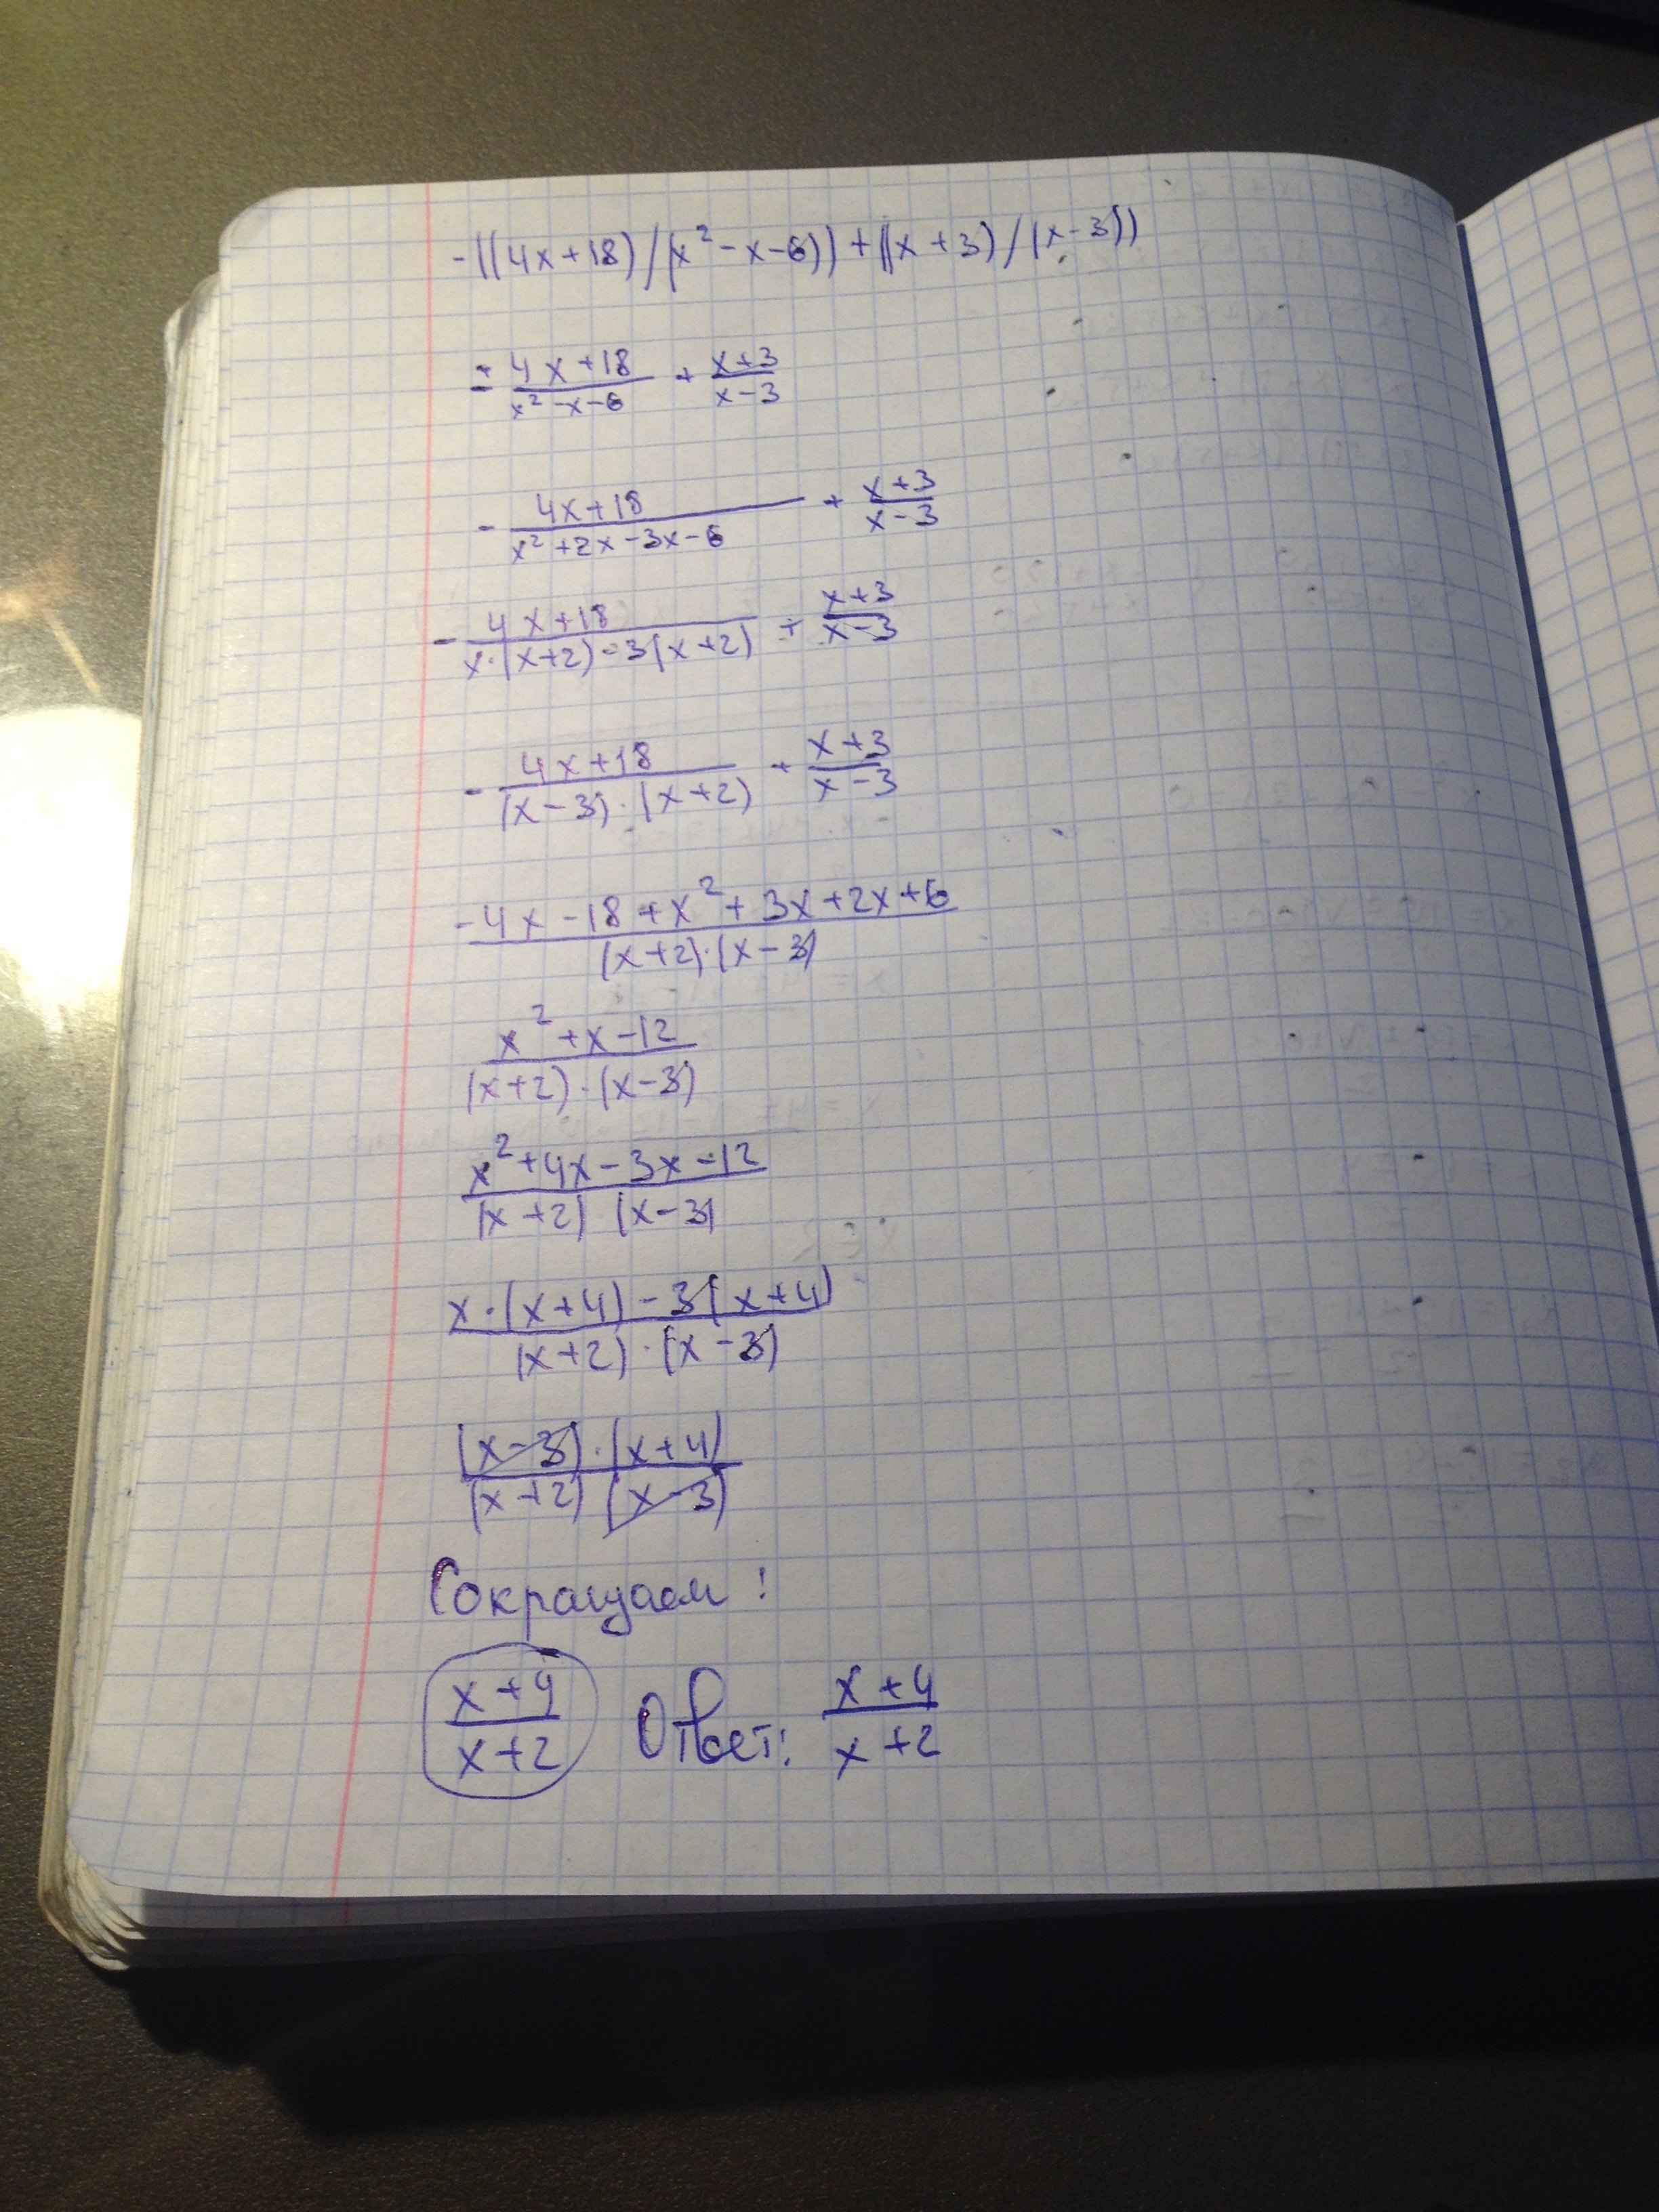 -((4x+18)/(x²-x-6))+((x+3)/(x-3))
= - \frac{4x+18}{x²-x-6} + \frac{x+3}{x-3}
- \frac{4x+18}{x²+2x-3x-6} + \frac{x+3}{x-3}
- \frac{4x+18}{x·(x+2)-3(x+2)} + \frac{x+3}{x-3}
- \frac{4x+18}{(x-3)·(x+2)} + \frac{x+3}{x-3}
\frac{-4x-18+x²+3x+2x+6}{(x+2)·(x-3)}
\frac{x²+x-12}{(x+2)·(x-3)}
\frac{x²+4x-3x-12}{(x+2)·(x-3)}
\frac{x·(x+4)-3(x+4)}{(x+2)·(x-3)}
\frac{(x-3)·(x+4)}{(x+2)(x-3)}
Сокращаем!
\frac{x+4}{x+2} Ответ: \frac{x+4}{x+2}